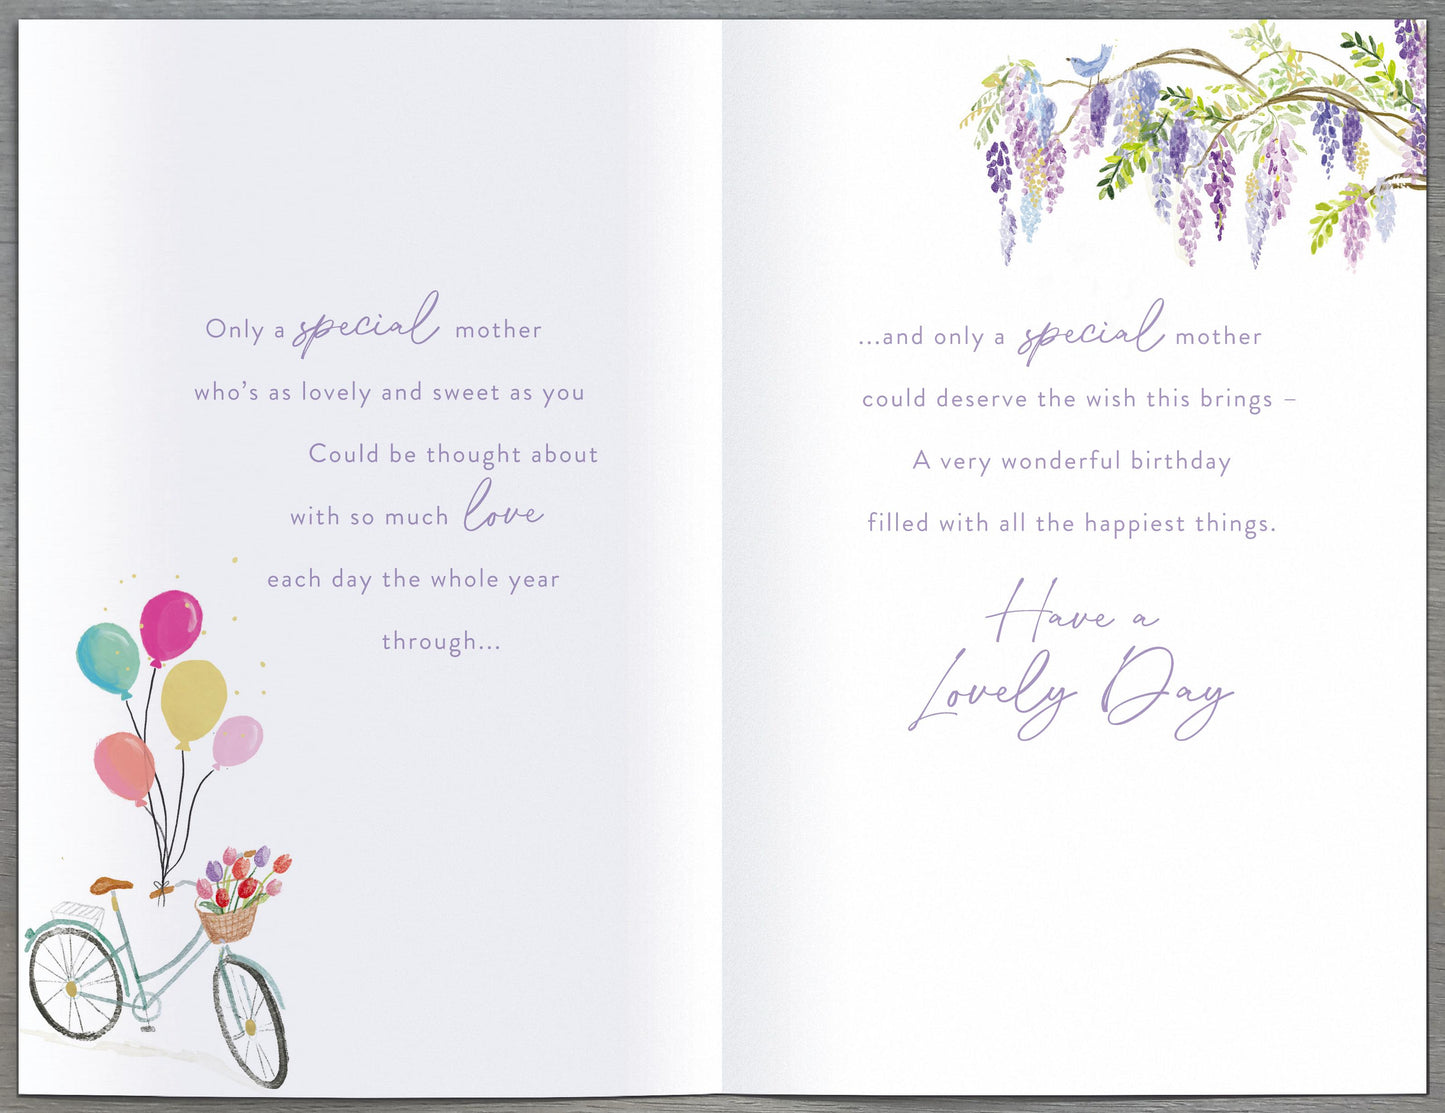 Only a special mother
who's as lovely and sweet as you
Could be thought about
with so much love
each day the whole year
through...
...and only a special mother
could deserve the wish this brings –
A very wonderful birthday
filled with all the happiest things.
Have a
Lovely Day